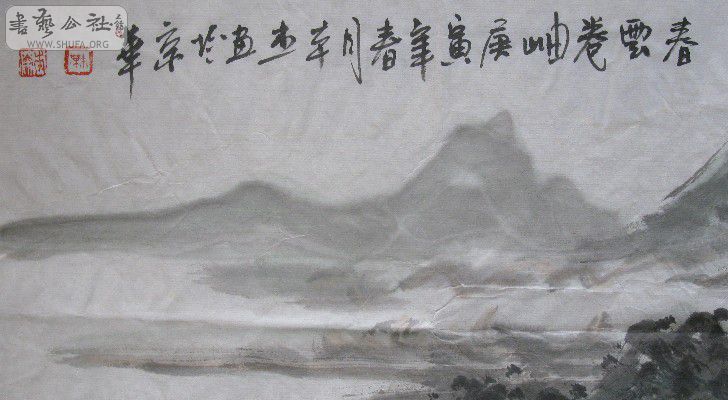 書藝公社
WWW.SHUFA.ORG
春雲卷岫庚寅年春月画於京華